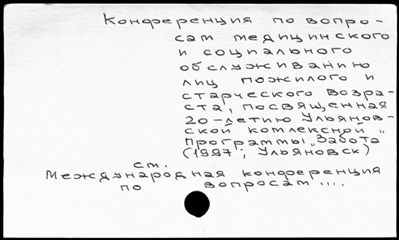 Конференция по вопро-
сам медицинского
и социального
обслуживанию
лиц пожилого и
старческого возра-
ста, посвященная
20-летию Ульянов-
ской комлексной
программы „Забота"
(1997; Ульяновск)
см.
Международная конференция
по вопросам ....